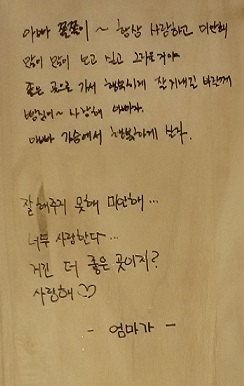 아빠 쫄쫄이~ 항상 사랑하고 미안해
많이 많이 보고 싶고 그리울거야
좋은 곳으로 가서 행복하게 잘 지내길 바란게
사랑해
아빠 가슴에서 행복하게 살자.
잘해주지 못해 미안해...
너무 사랑한다...
거긴 더 좋은 곳이지?
사랑해♡
- 엄마가 -